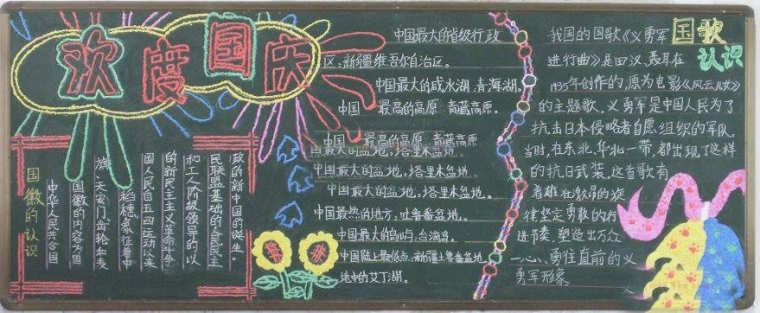 欢度国庆
国徽的认识
中华人民共合国
国徽的内容为国
旗、天安门齿轮和麦
稻穗象征着中
国人民自五四运动以来
的新民主主义革命斗争
和工人阶级领导的以
民联盟基础的人民民主
政的新中国的诞生。
中国最大的省级行政
区,新疆维吾尔自治区。
中国最大的咸水湖,青海湖。
中国 最高的高原 青藏高原。
中国 最高的高原 青藏高原
国最大的盆地,塔里木盆地
中国最大的盆地,塔里木盆地。
中国最大的盆地,塔里木盆地。
中国最热的地方,吐鲁番盆地。
中国最大的岛屿,台湾岛。
中国陆上最低点,新疆吐鲁番盆地
地中的艾丁湖。
国歌
认识
我国的国歌《义勇军
进行曲》是田汉、聂耳在
1935年创作的,原为电影《风云儿女》
的主题歌、义勇军是中国人民为了
抗击日本侵略者自愿组织的军队
当时,在东北、华北一带,都出现了这样
的抗日武装,这首歌有
着雄壮歌昂的旋
律坚定勇敢的行
进节奏,塑造出万众
一心、勇往直前的义
勇军形象